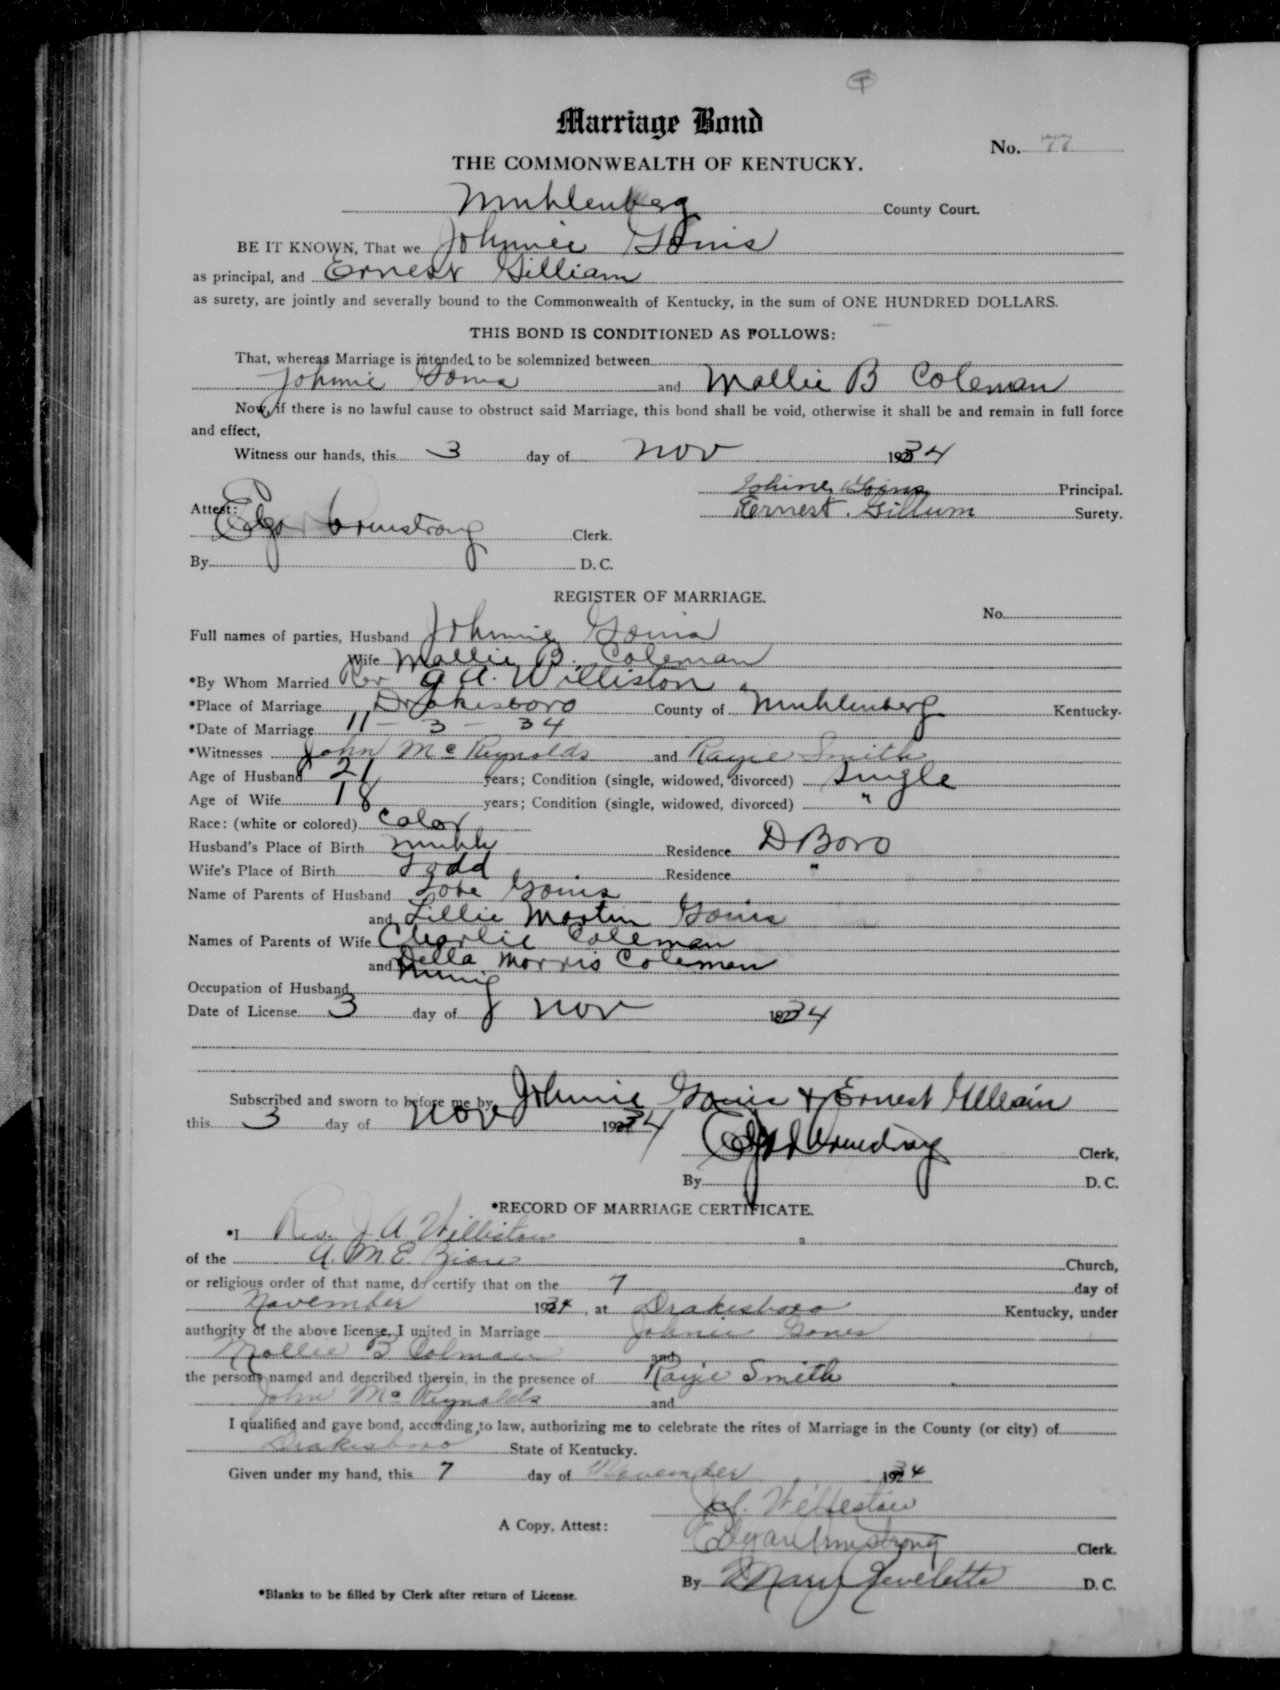 Marriage Bond
No. 77
THE COMMONWEALTH OF KENTUCKY.
Muhlenberg County Court.
BE IT KNOWN, That we Johnnie Goins
as principal, and Ernest Gilliam
as surety, are jointly and severally bound to the Commonwealth of Kentucky, in the sum of ONE HUNDRED DOLLARS.
THIS BOND IS CONDITIONED AS FOLLOWS:
That, whereas Marriage is intended to be solemnized between
Johnnie Goins and Mollie B Coleman
Now, if there is no lawful cause to obstruct said Marriage, this bond shall be void, otherwise it shall be and remain in full force
and effect,
Witness our hands, this 3 day of Nov 1934
Johnie Goins Principal.
Attest: Ernest. Gillum Surety.
Edgar Armstrong Clerk.
By D. C.
REGISTER OF MARRIAGE.
No.
Full names of parties, Husband Johnnie Goins
Wife Mollie B. Coleman
*By Whom Married Rev J A. Williston
*Place of Marriage Drakesboro County of Muhlenberg Kentucky.
*Date of Marriage 11 - 3 - 34
*Witnesses John McReynolds and Rayie Smith
Age of Husband 21 years; Condition (single, widowed, divorced) Single
Age of Wife 18 years; Condition (single, widowed, divorced) "
Race: (white or colored) Color
Husband's Place of Birth Muhl Residence D Boro
Wife's Place of Birth Todd Residence "
Name of Parents of Husband Goins
and Lillie Martin Goins
Names of Parents of Wife Charlie Coleman
and Della Morris Coleman
Occupation of Husband Mining
Date of License 3 day of Nov 1934
Subscribed and sworn to before me by Johnnie Goins & Ernest Gilliam
this 3 day of Nov 1934
Edgar Armstrong Clerk,
By D. C.
*RECORD OF MARRIAGE CERTIFICATE.
*I Rev. J. A. Williston a
of the A. M. E. Zion Church,
or religious order of that name, do certify that on the 7 day of
November 1934, at Drakesboro Kentucky, under
authority of the above license, I united in Marriage Johnie Gones
Mollie B Colman and
the persons named and described therein, in the presence of Rayie Smith
John McReynolds and
I qualified and gave bond, according to law, authorizing me to celebrate the rites of Marriage in the County (or city) of
Drakesboro State of Kentucky.
Given under my hand, this 7 day of November 1934
J. A. Williston
A Copy, Attest:
Edgar Armstrong Clerk.
By Mary D. C.
*Blanks to be filled by Clerk after return of License.